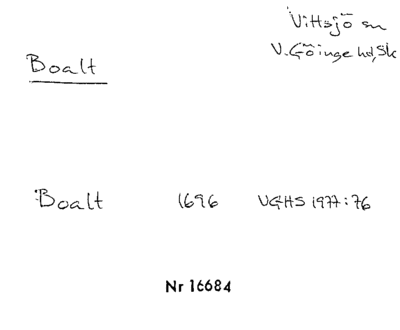 Vittsjö sn
V. Göinge hd, Sk
Boalt
Boalt 1696 VGHS 1977:76
Nr 16684